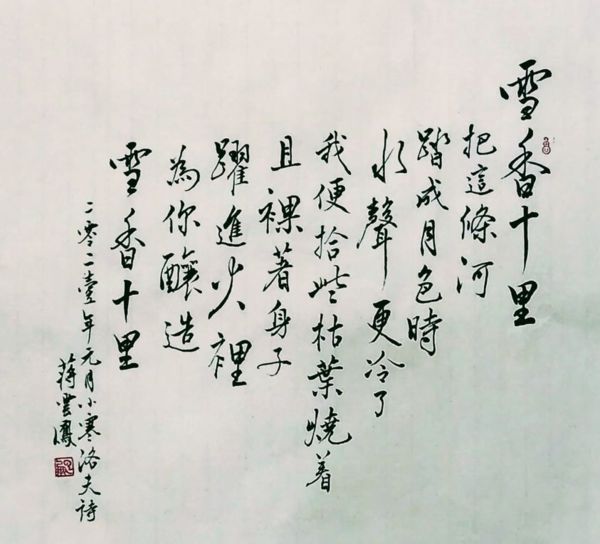 雪香十里
把這條河
踏成月色時
水聲更冷了
我便拾些枯葉燒着
且裸著身子
躍進火裡
為你釀造
雪香十里
二零二壹年元月小寒洛夫詩
蔣雲鳳